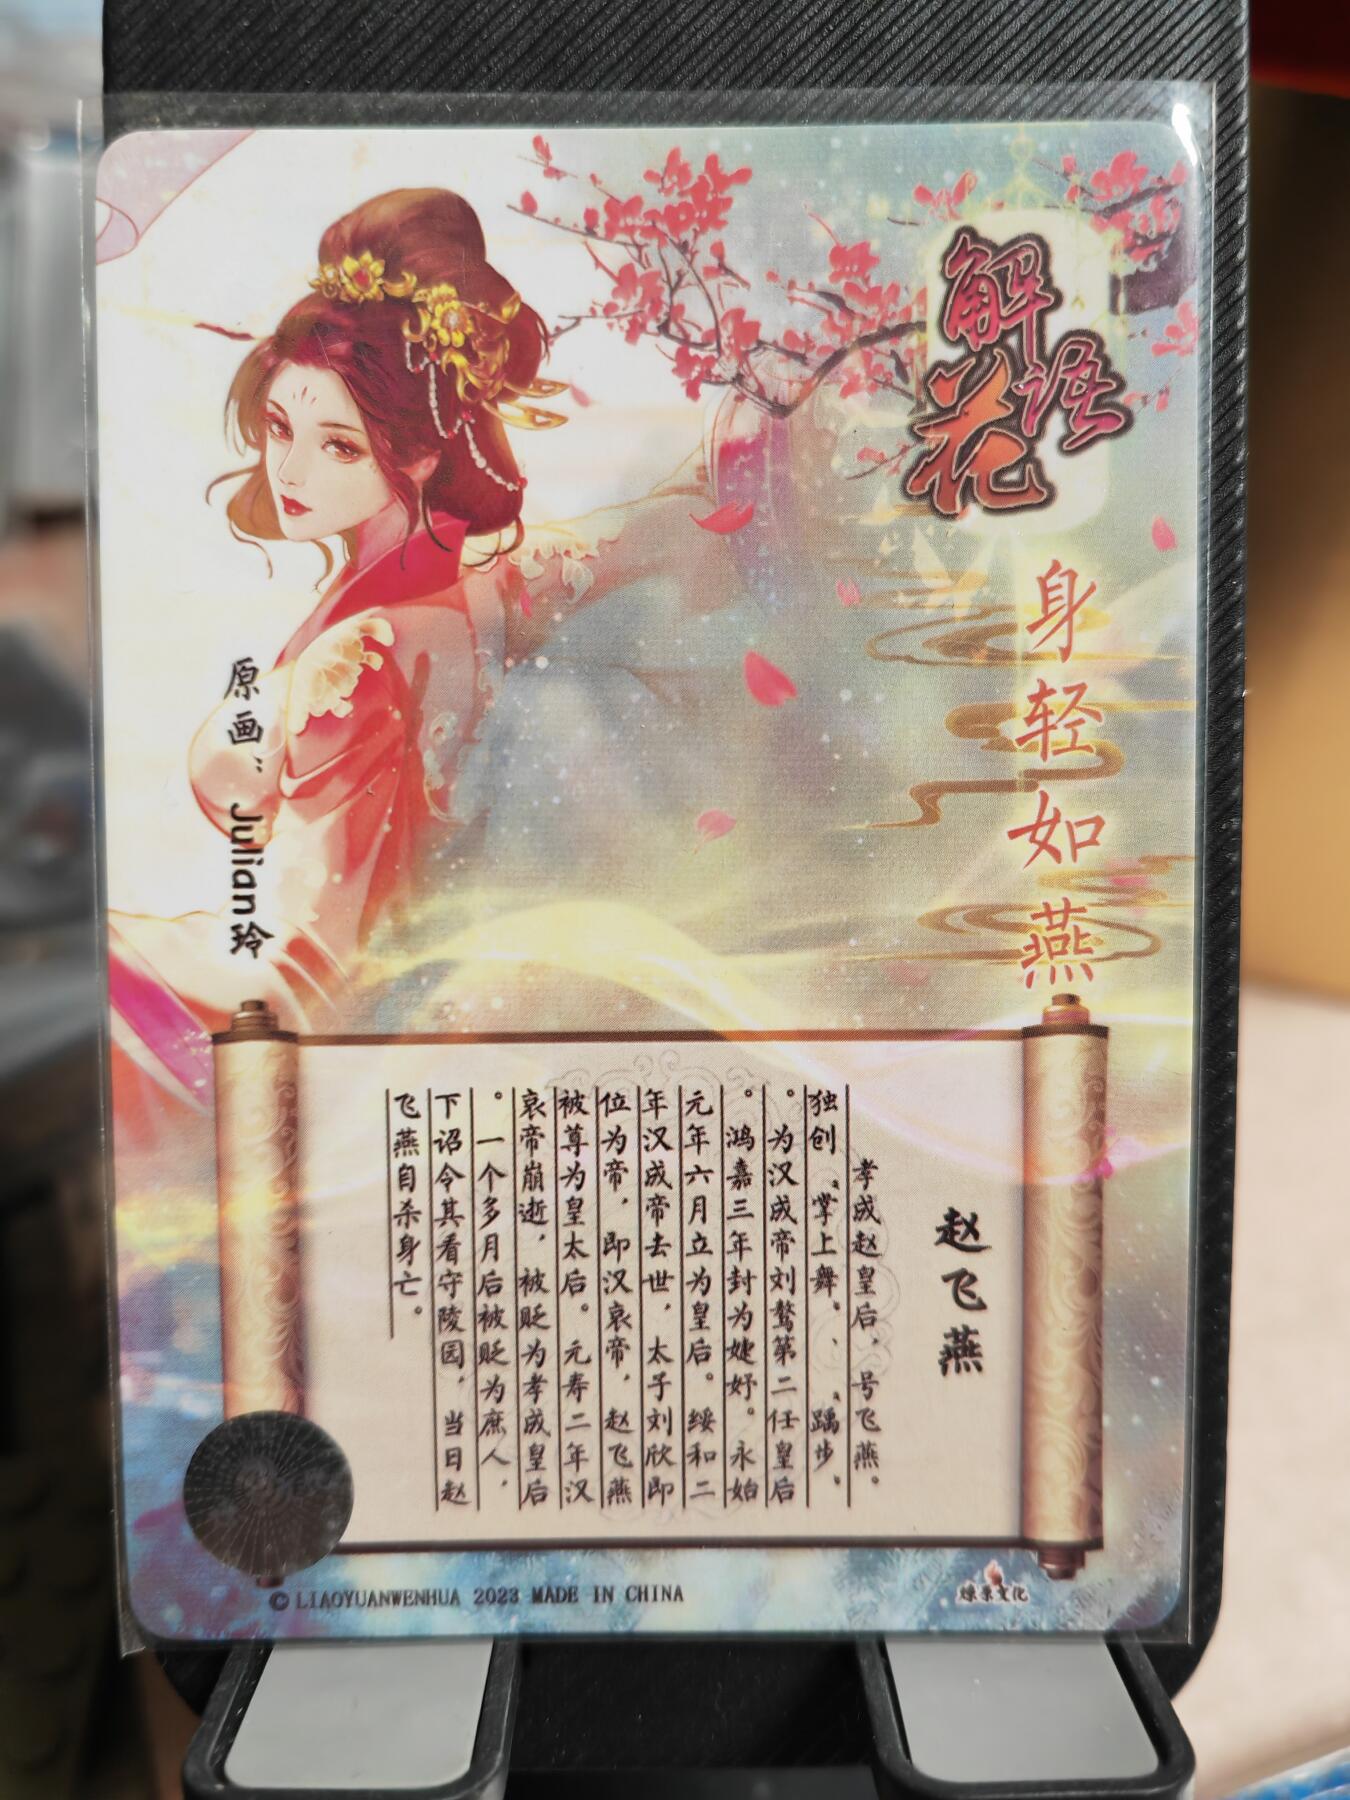 解语花
身轻如燕
原画：Julian玲
赵飞燕
孝成赵皇后，号飞燕。
独创“掌上舞”、“踽步”
。为汉成帝刘骜第二任皇后
。鸿嘉三年封为婕妤。永始
元年六月立为皇后。绥和二
年汉成帝去世，太子刘欣即
位为帝，即汉哀帝，赵飞燕
被尊为皇太后。元寿二年汉
哀帝崩逝，被贬为孝成皇后
。一个多月后被贬为庶人，
下诏令其看守陵园，当日赵
飞燕自杀身亡。
© LIAOYUANWENHUA 2023 MADE IN CHINA
燎原文化